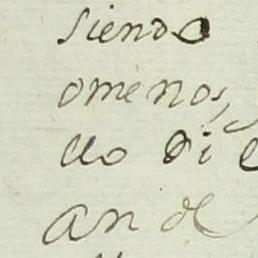 siendo
omenos,
do di
an de